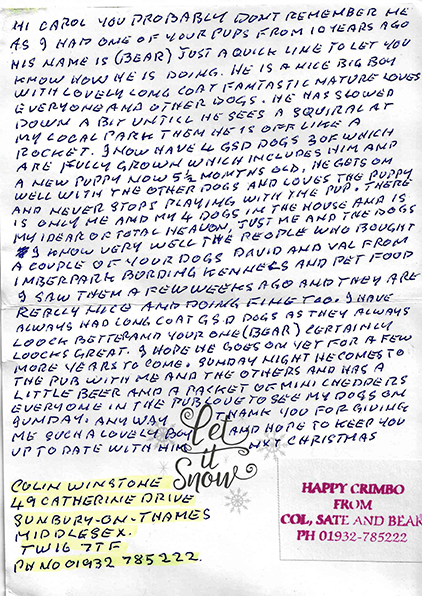 HI CAROL YOU PROBABLY DONT REMEMBER ME
AS I HAD ONE OF YOUR PUPS FROM 10 YEARS AGO
HIS NAME IS (BEAR) JUST A QUICK LINE TO LET YOU
KNOW HOW HE IS DOING. HE IS A NICE BIG BOY
WITH LOVELY LONG COAT FANTASTIC NATURE LOVES
EVERYONE AND OTHER DOGS. HE HAS SLOWED
DOWN A BIT UNTILL HE SEES A SQUIRAL AT
MY LOCAL PARK THEM HE IS OFF LIKE A
ROCKET. I NOW HAVE 4 GSD DOGS 3 OF WHICH
ARE FULLY GROWN WHICH INCLUDES HIM AND
A NEW PUPPY NOW 5½ MONTHS OLD. HE GETS ON
WELL WITH THE OTHER DOGS AND LOVES THE PUPPY
AND NEVER STOPS PLAYING WITH THE PUP. THERE
IS ONLY ME AND MY 4 DOGS IN THE HOUSE AND IS
MY IDEAR OF TOTAL HEAVON, JUST ME AND THE DOGS
I KNOW VERY WELL THE PEOPLE WHO BOUGHT
A COUPLE OF YOUR DOGS DAVID AND VAL FROM
IMBERPARK BORDING KENNELS AND PET FOOD
I SAW THEM A FEW WEEKS AGO AND THEY ARE
REALLY NICE AND DOING FINE TOO. I HAVE
ALWAYS HAD LONG COAT G.S.D DOGS AS THEY ALWAYS
LOOCK BETTER AND YOUR ONE (BEAR) CERTAINLY
LOOCKS GREAT. I HOPE HE GOES ON YET FOR A FEW
MORE YEARS TO COME. SUNDAY NIGHT HE COMES TO
THE PUB WITH ME AND THE OTHERS AND HAS A
LITTLE BEER AND A PACKET OF MINI CHEDDERS
EVERYONE IN THE PUB LOVE TO SEE MY DOGS ON
SUNDAY. ANY WAY THANK YOU FOR GIVING
ME SUCH A LOVELY AND HOPE TO KEEP YOU
UP TO DATE WITH HIM NXT CHRISTMAS
Let
it
Snow
COLIN WINSTONE
49 CATHERINE DRIVE
SUNBURY-ON-THAMES
MIDDLESEX.
TW16 7TF
PH NO 01932 785222.
HAPPY CRIMBO
FROM
COL, SATE AND BEAR
PH 01932-785222